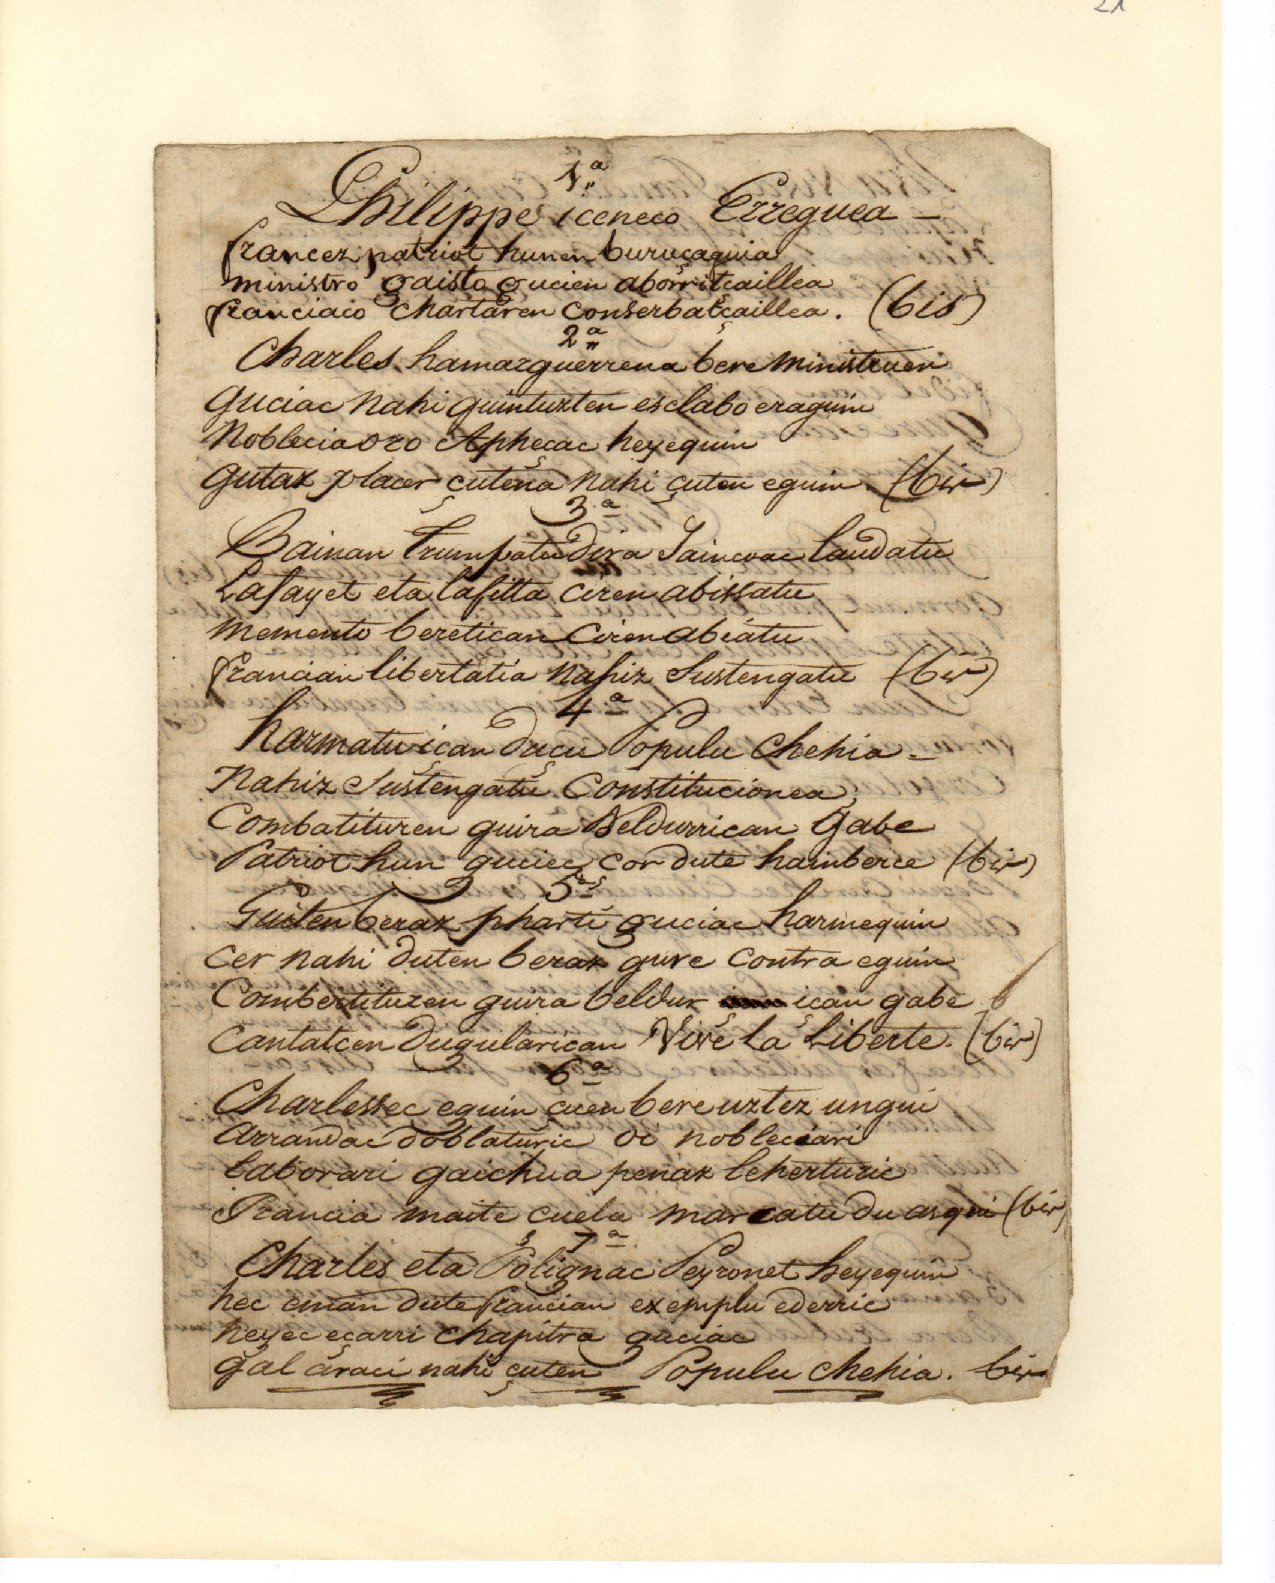 21
1ª
Philippe iceneco Erreguea —
francez patriot hunen buruçaguia
ministro gaisto gucien aborritçaillea
franciaco chartaren conserbatçaillea. (bis)
2ª
Charles hamarguerrena bere ministruen
guciac nahi guintuzten esclabo eraguin
Noblecia oro Aphecac heyequin
gutaz placer çutena nahi çuten eguin. (bis)
3ª
Bainan trumpatu dira Jaincoac laudatu
Lafayet eta lafitta ciren abissatu
Memento beretican ciren abiatu
francian libertatia nahiz sustengatu (bis)
4ª
harmatu içan duçu Populu chehia —
Nahiz sustengatu Constitucionea
Combatituren guira Beldurrican gabe
Patriot hun guciec cor dute hainberce (bis)
5ª
Guiten beraz phartí guciac harmequin
Cer nahi duten beraz gure contra eguin
Combertituren guira beldur içan gabe
Cantatcen dugularican Vive la Liberte. (bis)
6ª
Charlessec eguin çuen bere uztez ungui
Arrandac doblaturic oi nobleciari
laborari gaichua penaz leherturic
Francia maite çuela marcatu du asqui (bis)
7ª
Charles eta Polignac Peyronet heyequin
hec eman dute francian exemplu ederric
heyec eçarri chapitra guciac
gal araci nahi çuten Populu chehia. bis